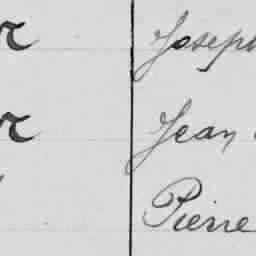 r Joseph
r Jean
Pierre